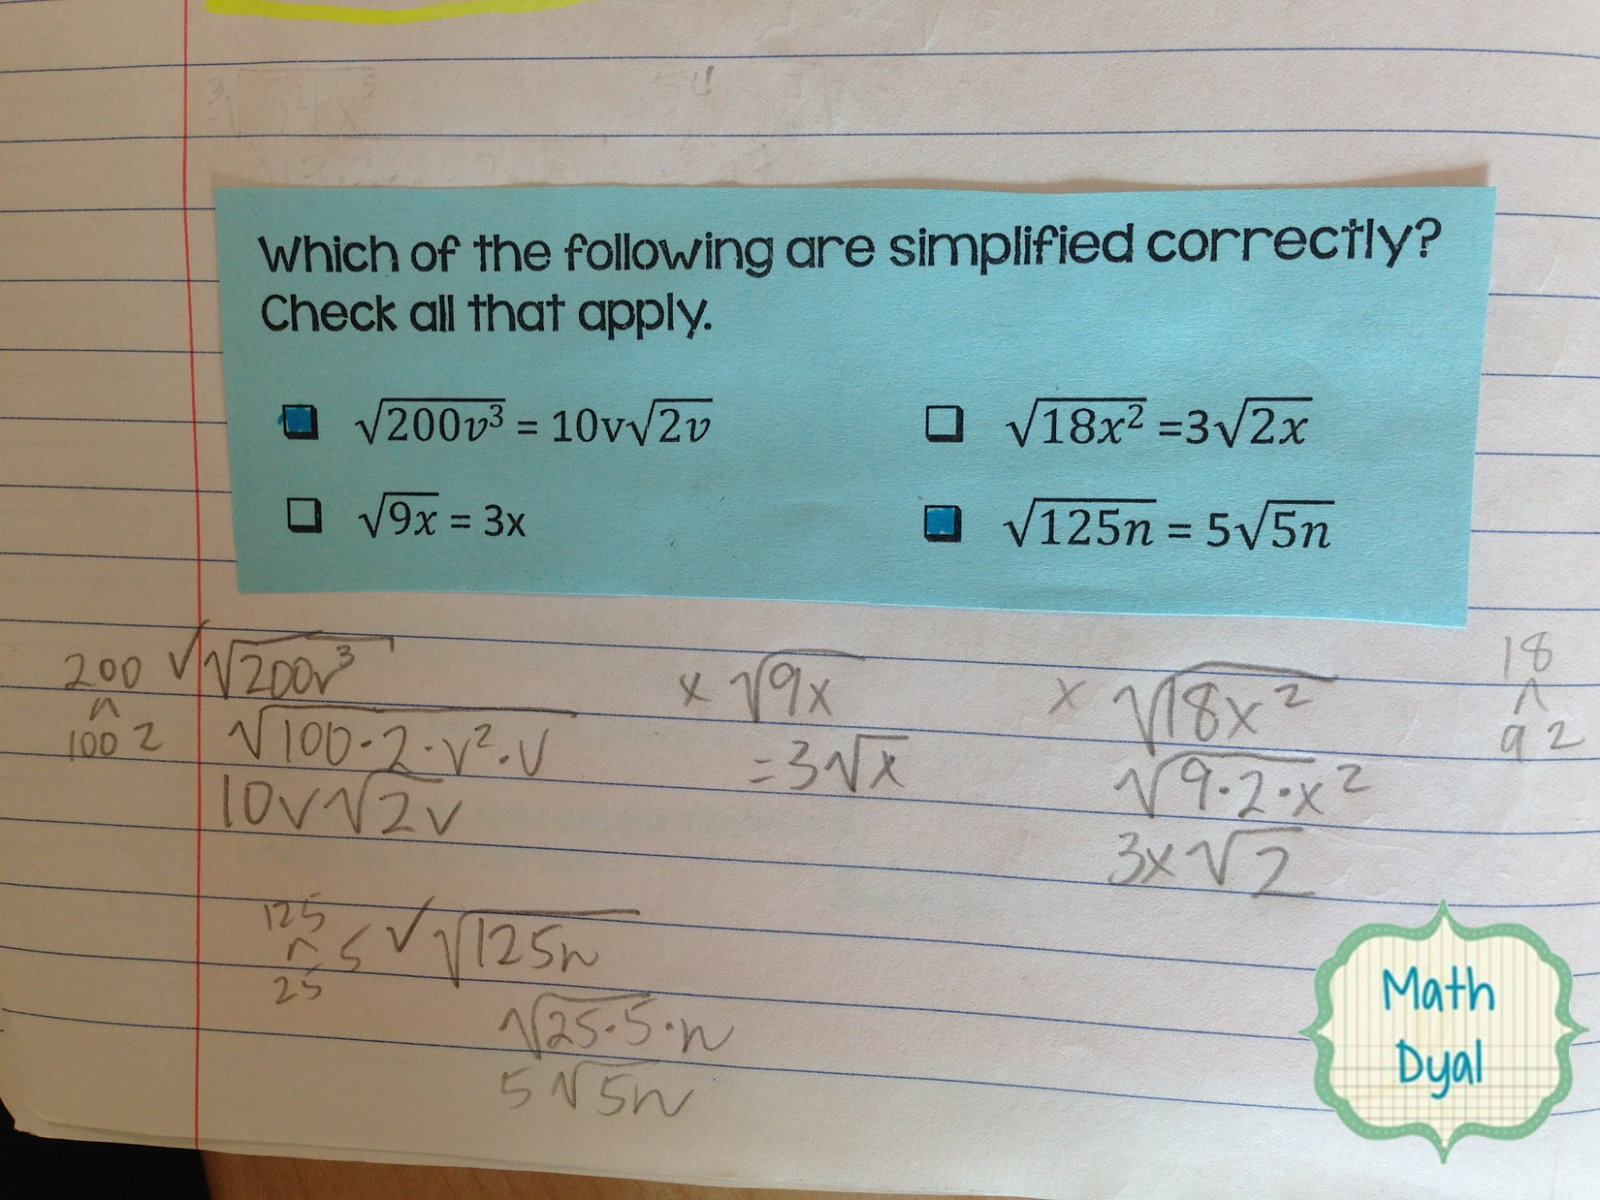 Which of the following are simplified correctly?
Check all that apply.
√200v³ = 10v√2v
√18x² =3√2x
√9x = 3x
√125n = 5√5n
200 ✓ √200v³
100 2
√100·2·v²·v
10v√2v
x √9x
=3√x
x √18x²
√9·2·x²
3x√2
18
9 2
125
25 5 ✓ √125n
√25·5·n
5√5n
Math
Dyal